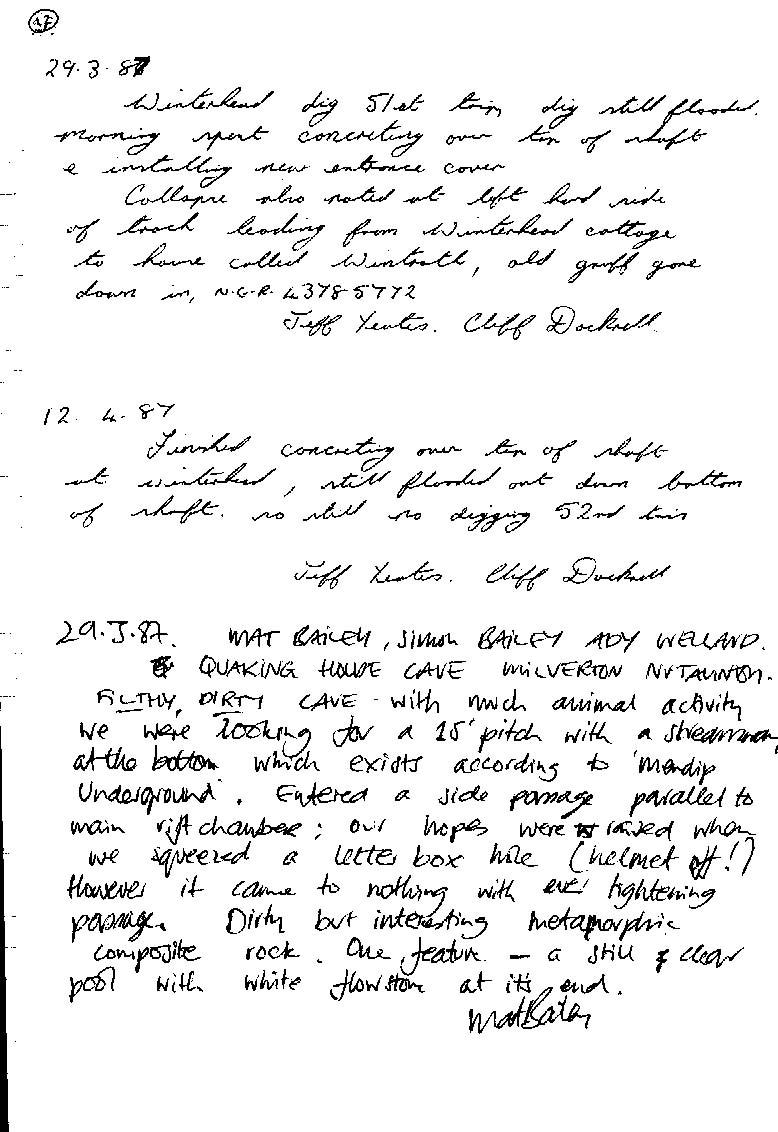 29.3.87
Winterhead dig 51st trip, dig still flooded.
Morning spent concreting over top of shaft
& installing new entrance cover
Collapse also noted at left hand side
of track leading from Winterhead cottage
to house called, old gruff gone
down in, N.G.R. 43785772
Jeff Yeates. Cliff Dockrell.
12. 4. 87
Finished concreting over top of shaft
at winterhead, still flooded out down bottom
of shaft. so still no digging 52nd trip
Jeff Yeates. Cliff Dockrell
29.3.87. MAT BAILEY, SIMON BAILEY ADY WELLAND.
QUAKING HOUSE CAVE MILVERTON NR TAUNTON.
FILTHY, DIRTY CAVE - with much animal activity
We were looking for a 15' pitch with a streamway,
at the bottom which exists according to 'Mendip
Underground'. Entered a side passage parallel to
main rift chamber; our hopes were raised when
we squeezed a letter box hole (helmet off!)
However it came to nothing with ever tightening
passage. Dirty but interesting metamorphic
composite rock. One feature - a still & clear
pool with white flowstone at its end.
Mat Bailey